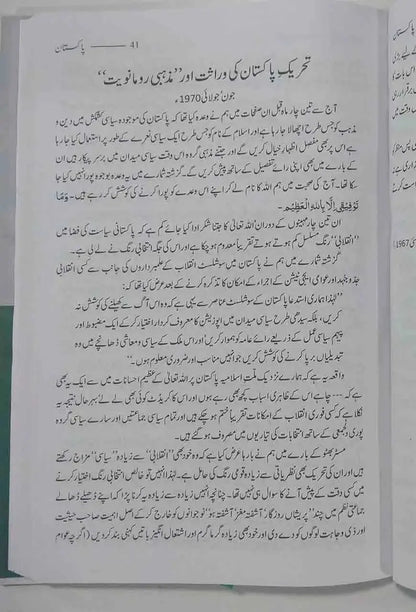 پاکستان —— 41
تحریکِ پاکستان کی وراثت اور ”مذہبی رومانویت“
جون/جولائی 1970ء
آج سے تین چار ماہ قبل ان صفحات میں ہم نے وعدہ کیا تھا کہ پاکستان کی موجودہ سیاسی کشمکش میں دین و
مذہب کو جس طرح اچھالا جا رہا ہے اور اسلام کے نام کو جس طرح ایک سیاسی نعرے کے طور پر استعمال کیا جا رہا
ہے اس پر بھی مفصل اظہارِ خیال کریں گے اور جتنے مذہبی گروہ اس وقت سیاسی میدان میں برسرِ پیکار ہیں ان
کے بارے میں بھی اپنی رائے تفصیل کے ساتھ پیش کریں گے۔ گزشتہ شمارے میں یہ وعدہ بوجوہ پورا نہیں کیا جا
سکا تھا۔ آج کی صحبت میں ہم اللہ کا نام لے کر اپنے اس وعدے کو پورا کرنے کی کوشش کر رہے ہیں۔ وَمَا
تَوْفِیْقِیْ اِلَّا بِاللّٰہِ الْعَظِیْمِ۔
ان تین چار مہینوں کے دوران اللہ تعالیٰ کا جتنا شکر ادا کیا جائے کم ہے کہ پاکستانی سیاست کی فضا میں
”انقلابی“ رنگ مسلسل کم ہوتے ہوتے تقریباً معدوم ہو چکا ہے اور اس کی جگہ انتخابی رنگ نے لے لی ہے۔
گزشتہ شمارے میں ہم نے پاکستان میں سوشلسٹ انقلاب کے علمبرداروں کی جانب سے کسی انقلابی
جدوجہد اور عوامی ایجی ٹیشن کے اجراء کے امکان کا تذکرہ کرنے کے بعد عرض کیا تھا کہ:
”لہٰذا ہماری استدعا پاکستان کے سوشلسٹ عناصر سے یہی ہے کہ وہ اس آگ سے کھیلنے کی کوشش نہ
کریں، بلکہ سیدھی طرح سیاسی میدان میں اپوزیشن کا معروف کردار اختیار کر کے ایک مضبوط اور
پیہم سیاسی عمل کے ذریعے رائے عامہ کو ہموار کریں اور اس ملک کے سیاسی و معاشی ڈھانچے میں وہ
تبدیلیاں برپا کرنے کی کوشش کریں جو انہیں مناسب اور ضروری معلوم ہوں۔“
واقعہ یہ ہے کہ ہمارے نزدیک ملت اسلامیہ پاکستان پر اللہ تعالیٰ کے عظیم احسانات میں سے ایک یہ بھی
ہے کہ --- چاہے اس کے ظاہری اسباب کچھ بھی رہے ہوں اور اس کا کریڈٹ کوئی بھی لے لے بہرحال نتیجہ یہ
نکلا ہے کہ کسی فوری انقلاب کے امکانات تقریباً ختم ہو چکے ہیں اور تمام سیاسی جماعتیں اور سارے سیاسی گروہ
پوری دلجمعی کے ساتھ انتخابات کی تیاریوں میں مصروف ہو گئے ہیں۔
مسٹر بھٹو کے بارے میں ہم نے بارہا عرض کیا ہے کہ وہ خود بھی ”انقلابی“ سے زیادہ ”سیاسی“ مزاج رکھتے
ہیں اور ان کی تحریک بھی نظریاتی سے زیادہ قومی رنگ کی حامل ہے۔ لہٰذا انہیں تو خالص انتخابی رنگ اختیار کرنے
میں کسی دقت کے پیش آنے کا سوال ہی نہیں تھا۔ چنانچہ انہیں زیادہ سے زیادہ یہ کرنا پڑا کہ اپنے ڈھیلے ڈھالے
جماعتی نظم میں چند ”پریشاں روزگار، آشفتہ مغز، آشفتہ ہو“ نوجوانوں کو خارج کر کے اصل اہمیت صاحبِ حیثیت
اور ذی وجاہت لوگوں کو دے دی اور خود بھی زیادہ گرما گرم اور اشتعال انگیز باتیں کہنی بند کر دیں (اگرچہ عوام